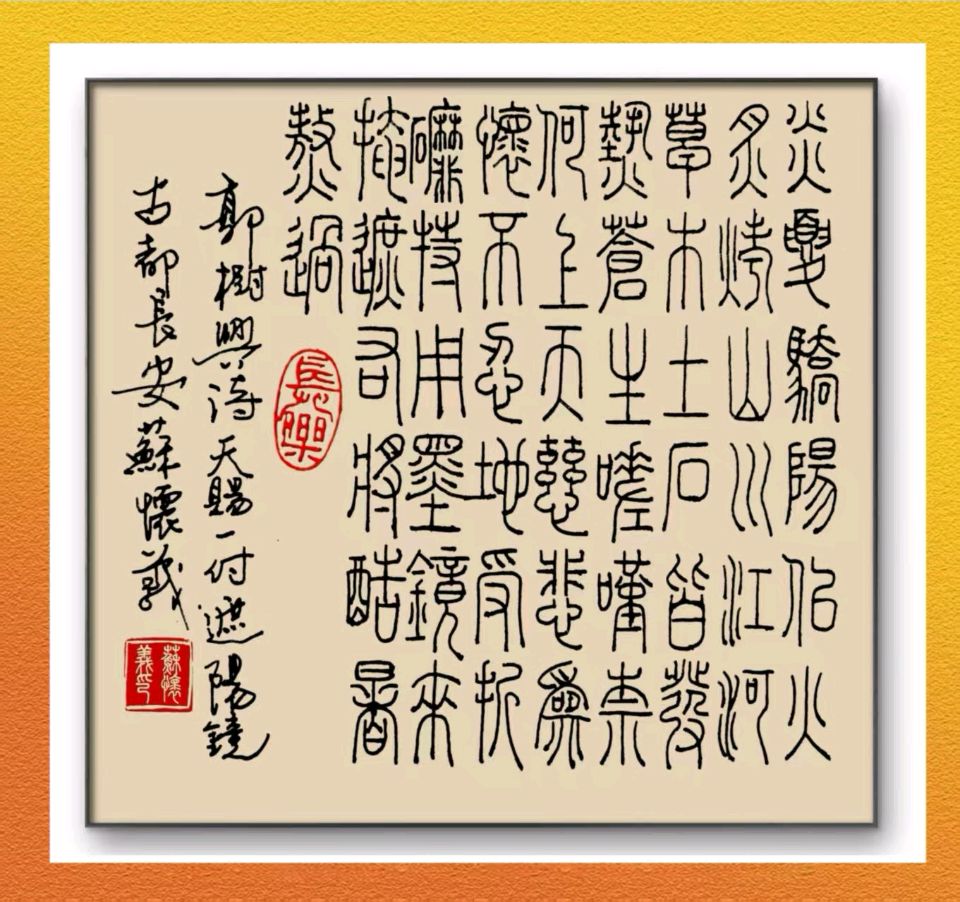 炎夏驕陽似火
炙烤山川江河
草木土石皆發
熱蒼生嗟嘆奈
何上天慈悲為
懷不忍地受折
磨特用墨鏡來
掩遮將酷暑
熬過
長樂
郭樹興詩 天賜一付遮陽鏡
古都長安蘇懷義
蘇懷義印